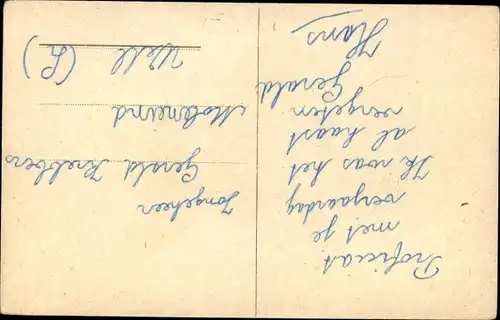 Proficiat
met je
verjaardag
Ik was het
al haast
vergeten
Gerald
Hans
Jongeheer
Gerald Krebbers
Moleneind
Well (L)